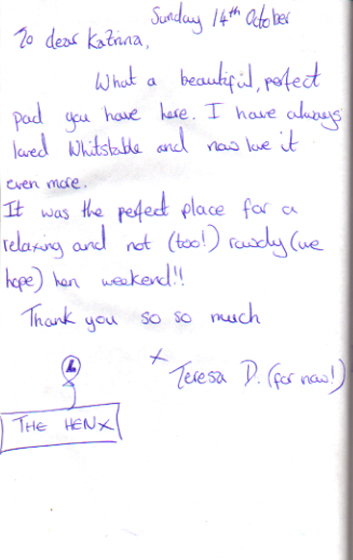 Sunday 14th October
To dear Katrina,
What a beautiful, perfect
pad you have here. I have always
loved Whitstable and now love it
even more.
It was the perfect place for a
relaxing and not (too!) rowdy (we
hope) hen weekend!!
Thank you so so much
x
Teresa D. (for now!)
L
THE HENX